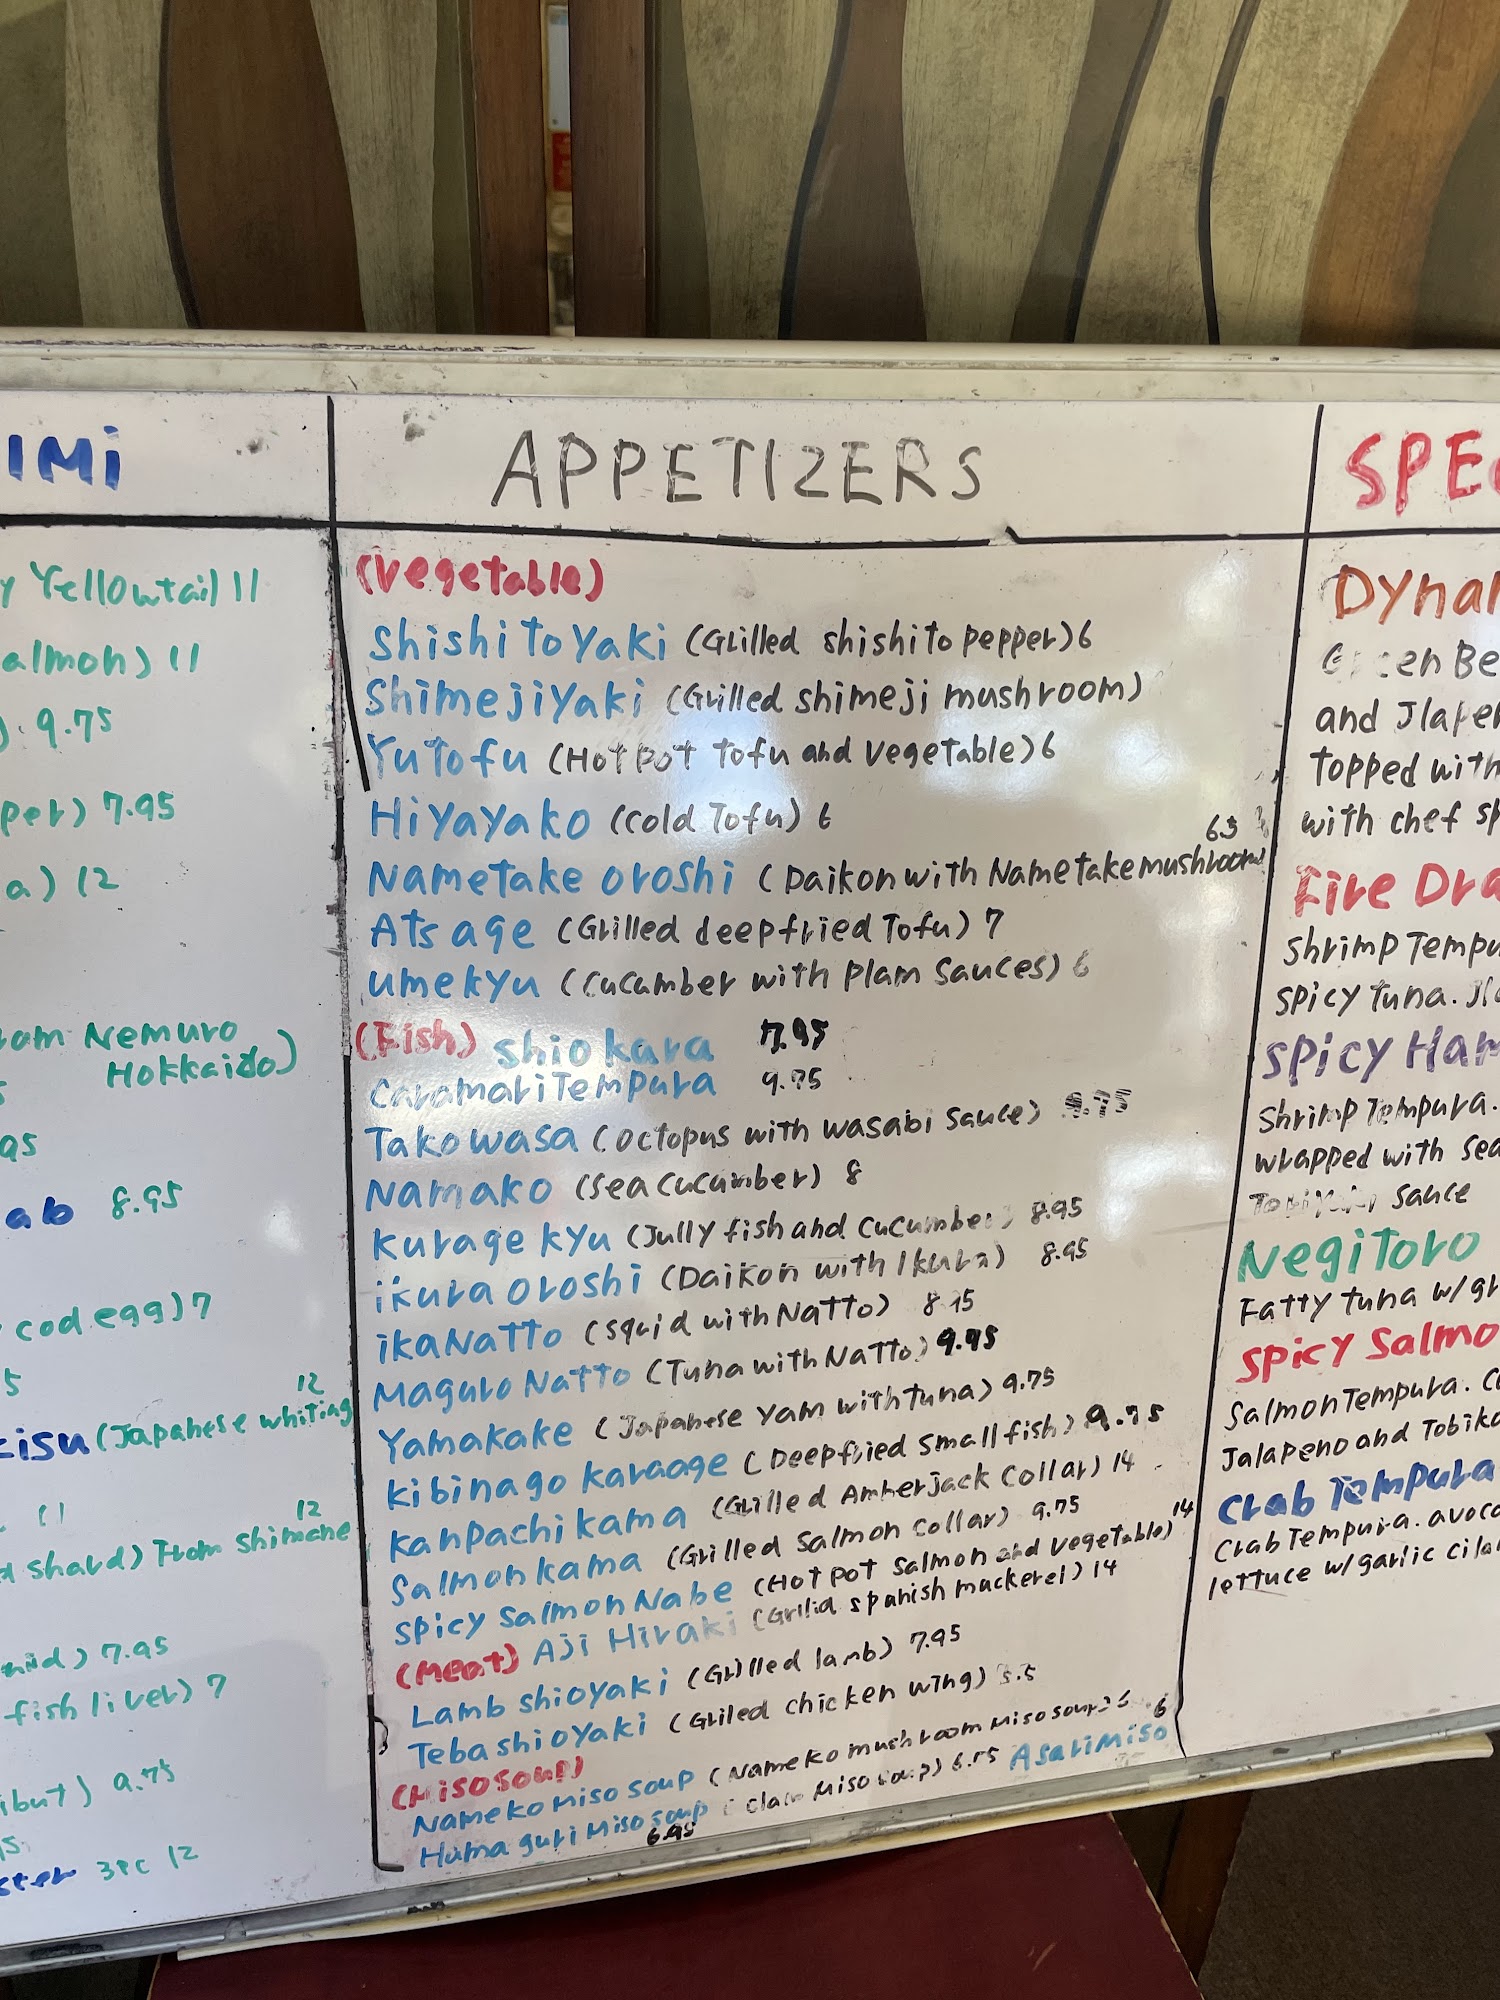 IMI
y Yellowtail 11
almon) 11
9.75
per) 7.95
a) 12
om Nemuro
Hokkaido)
95
ab 8.95
cod egg) 7
5
12
kisu (Japanese whiting
11
12
d shard) From Shimane
7.95
fish liver) 7
ibut) 9.75
ster 3PC 12
APPETIZERS
(Vegetable)
Shishitoyaki (Grilled shishito pepper) 6
Shimejiyaki (Grilled shimeji mushroom)
Yutofu (Hot Pot Tofu and Vegetable) 6
Hiyayako (Cold Tofu) 6
6.5
Nametake oroshi (Daikon with Nametake mushroom)
Atsage (Grilled deepfried Tofu) 7
Umekyu (Cucumber with Plam Sauces) 6
(Fish) Shiokara 7.95
Caramari Tempura 9.75
Takowasa (Octopus with wasabi Sauce) 9.75
Namako (Sea Cucumber) 8
Kurage kyu (Jully fish and Cucumber) 8.95
ikura oroshi (Daikon with Ikura) 8.95
ika Natto (Squid with Natto) 8.95
Maguro Natto (Tuna with Natto) 9.95
Yamakake (Japanese Yam with tuna) 9.75
Kibinago karaage (Deepfried Small fish) 9.75
Kanpachi kama (Grilled Amberjack Collar) 14
Salmon kama (Grilled Salmon Collar) 9.75
14
Spicy Salmon Nabe (Hot Pot Salmon and Vegetable)
(Meat) Aji Hiraki (Grilld Spanish mackerel) 14
Lamb shioyaki (Grilled lamb) 7.95
Teba shioyaki (Griled chicken wing) 5.5
(Miso soup)
Nameko Miso soup (Nameko mushroom Miso soup) 6
6
Hamaguri Miso soup (Clam Miso soup) 6.95 Asari Miso
6.95
SPE
Dyna
Green Be
and Jlape
topped with
with chef sp
Fire Dra
Shrimp Tempu
Spicy tuna. Jl
Spicy Ham
Shrimp Tempura.
wrapped with sea
Teriyaki Sauce
Negitoro
Fatty tuna w/gr
Spicy Salmo
Salmon Tempura. C
Jalapeno and Tobiko
Crab Tempura
Crab Tempura. avoca
lettuce w/garlic cila